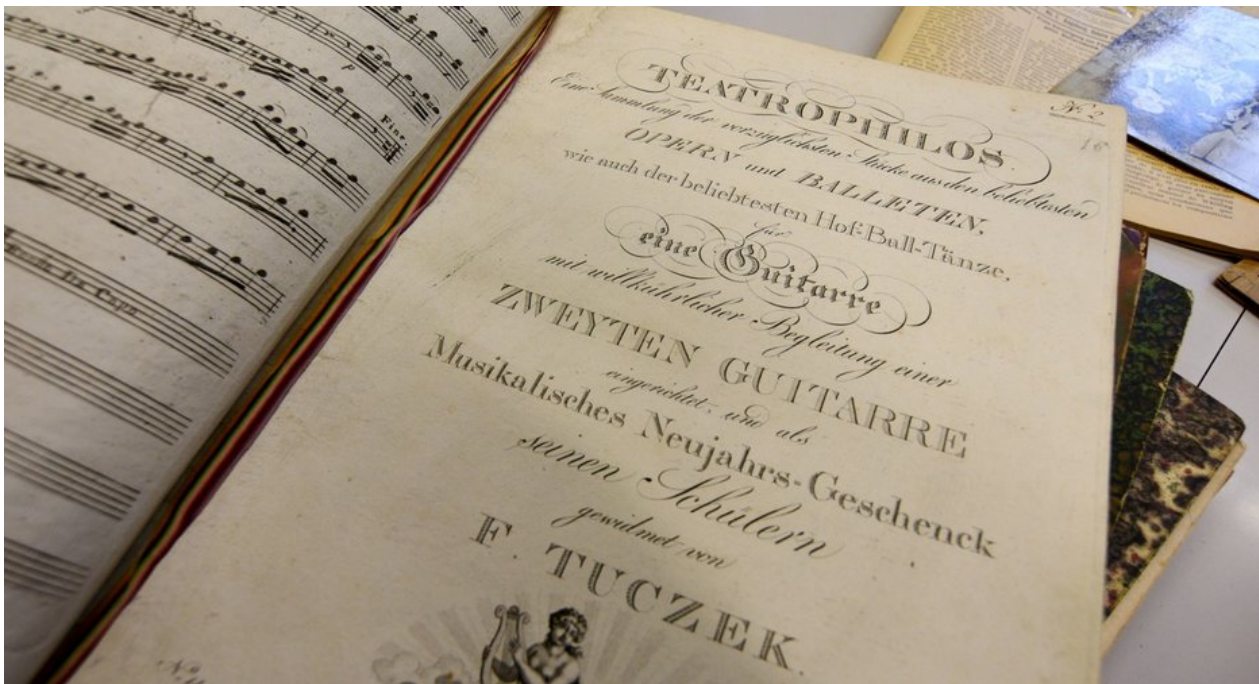 p
Fine.
Da Capo
TEATROPHILOS.
Eine Sammlung der vorzüglichsten Stücke aus den beliebtesten
OPERN und BALLETEN,
wie auch der beliebtesten Hof-Ball-Tänze,
für
eine Guitarre
mit willkührlicher Begleitung einer
ZWEYTEN GUITARRE
eingerichtet, und als
Musikalisches Neujahrs-Geschenck
seinen Schülern
gewidmet von
F. TUCZEK.
No. 2